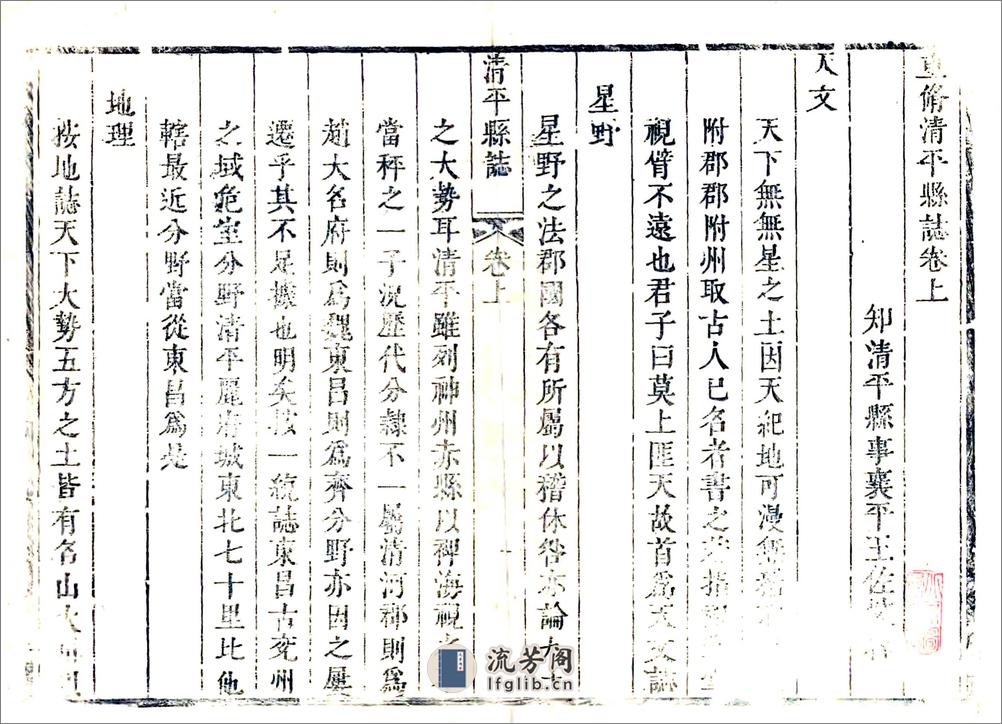 重脩清平縣誌卷上
知清平縣事襄平王佐
天文
天下無無星之土因天紀地可漫無
附郡郡附州取古人已名者書之
視臂不遠也君子曰莫上匪天故首爲天文誌
星野
星野之法郡國各有所屬以稽休咎亦論
清平縣誌 卷上 一
之大勢耳清平雖列神州赤縣以裨海視之
當稊之一子況歷代分隷不一屬清河郡則爲
趙大名府則爲魏東昌則爲齊分野亦因之屢
遷乎其不足據也明矣按一統誌東昌古兗州
之域危室分野清平麗府城東北七十里比他
轄最近分野當從東昌爲是
地理
按地誌天下大勢五方之土皆有名山大
流芳阁
lfglib.cn